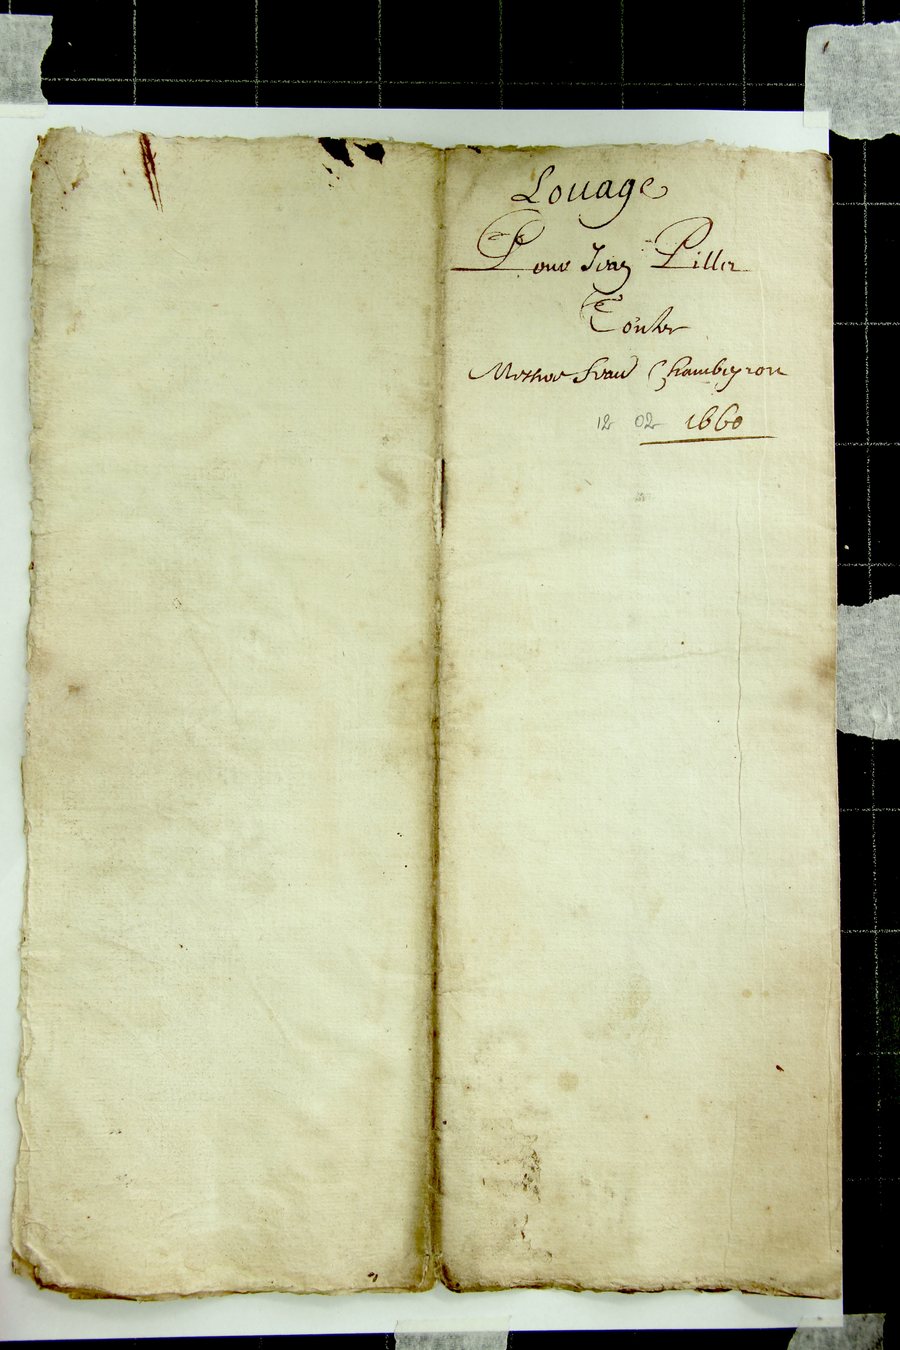 Louage
Pour Ivaz Piller
Contre
Messire Jean Chambeyron
12 02 1660